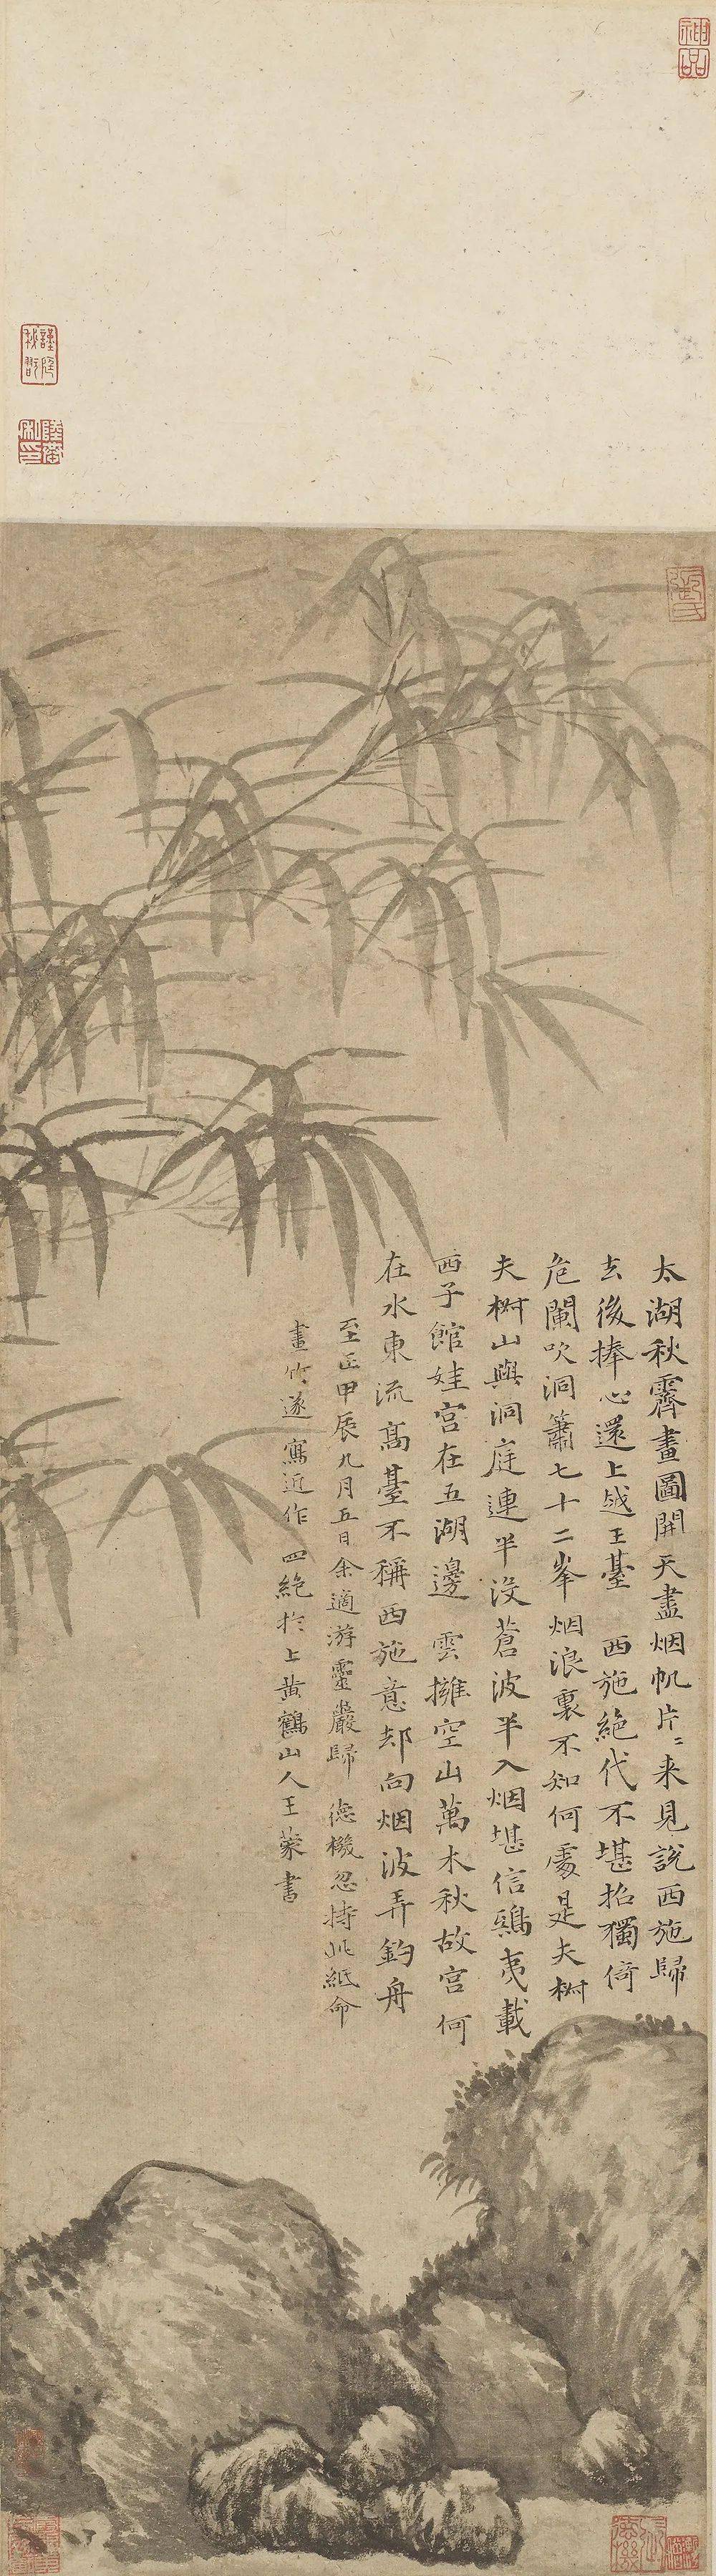 神品
太湖秋霽畫圖開天盡烟帆片〻来見說西施歸
去後捧心還上越王臺　西施絕代不堪招獨倚
危闌吹洞簫七十二峯烟浪裏不知何處是夫椒
夫椒山與洞庭連半沒蒼波半入烟堪信鴟夷載
西子館娃宮在五湖邊　雲擁空山萬木秋故宮何
在水東流高臺不稱西施意却向烟波弄釣舟
至正甲辰九月五日余適游靈巖歸　德機忽持此紙命
畫竹遂寫近作　四絕於上黃鶴山人王蒙書